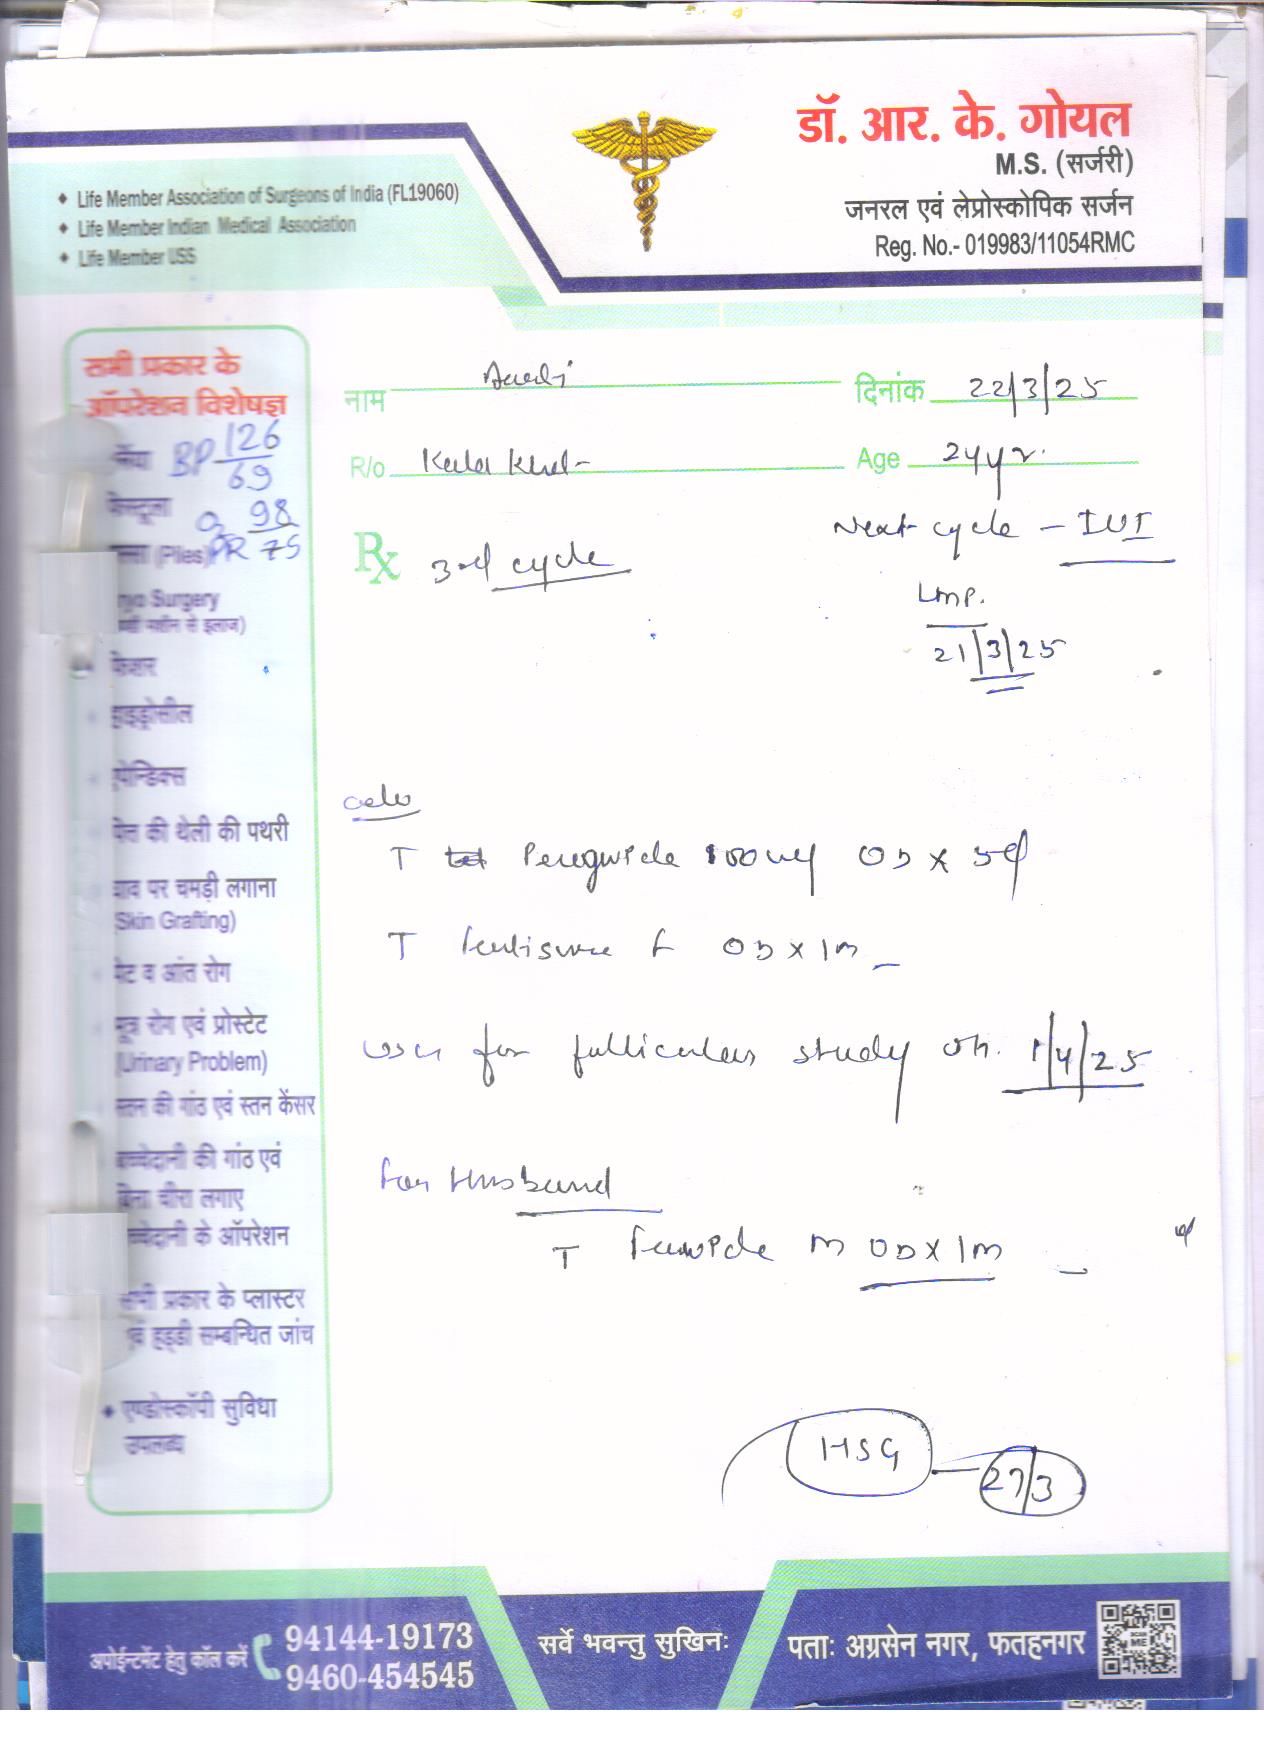 डॉ. आर. के. गोयल
M.S. (सर्जरी)
जनरल एवं लेप्रोस्कोपिक सर्जन
Reg. No.- 019983/11054RMC
Life Member Association of Surgeons of India (FL19060)
Life Member Indian Medical Association
Life Member USS
सभी प्रकार के
ऑपरेशन विशेषज्ञ
BP 126/69
98
PR 75
(Piles)
Surgery
से इलाज)
फिशर
हाइड्रोसील
एपेन्डिक्स
पित्त की थैली की पथरी
घाव पर चमड़ी लगाना
(Skin Grafting)
पेट व आंत रोग
मूत्र रोग एवं प्रोस्टेट
(Urinary Problem)
स्तन की गांठ एवं स्तन केंसर
बच्चेदानी की गांठ एवं
बिना चीरा लगाए
बच्चेदानी के ऑपरेशन
सभी प्रकार के प्लास्टर
एवं हड्डी सम्बन्धित जांच
एण्डोस्कॉपी सुविधा
उपलब्ध
नाम
दिनांक 22/3/25
R/o
Age 24yr.
Rx 3rd cycle
Next cycle - IUI
LMP.
21/3/25
T 100mg OD x 5d
T F OD x 1m
for follicular study on. 1/4/25
For Husband
T M OD x 1m
HSG - 27/3
अपोईन्टमेंट हेतु कॉल करें 94144-19173
9460-454545
सर्वे भवन्तु सुखिनः
पताः अग्रसेन नगर, फतहनगर